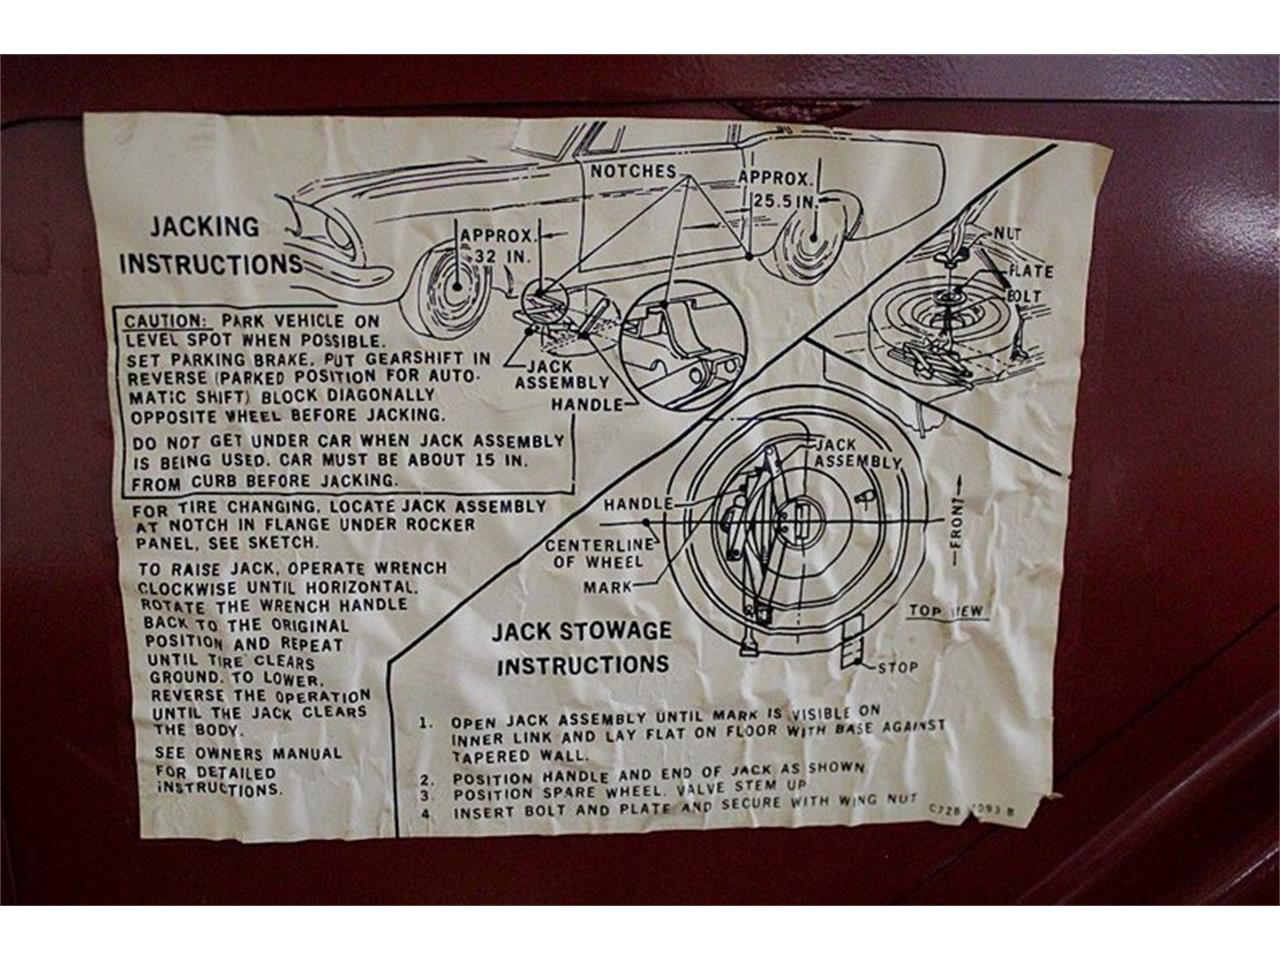 JACKING
INSTRUCTIONS
CAUTION: PARK VEHICLE ON
LEVEL SPOT WHEN POSSIBLE.
SET PARKING BRAKE, PUT GEARSHIFT IN
REVERSE (PARKED POSITION FOR AUTO-
MATIC SHIFT) BLOCK DIAGONALLY
OPPOSITE WHEEL BEFORE JACKING.
DO NOT GET UNDER CAR WHEN JACK ASSEMBLY
IS BEING USED. CAR MUST BE ABOUT 15 IN.
FROM CURB BEFORE JACKING.
FOR TIRE CHANGING, LOCATE JACK ASSEMBLY
AT NOTCH IN FLANGE UNDER ROCKER
PANEL, SEE SKETCH.
TO RAISE JACK, OPERATE WRENCH
CLOCKWISE UNTIL HORIZONTAL.
ROTATE THE WRENCH HANDLE
BACK TO THE ORIGINAL
POSITION AND REPEAT
UNTIL TIRE CLEARS
GROUND. TO LOWER,
REVERSE THE OPERATION
UNTIL THE JACK CLEARS
THE BODY.
SEE OWNERS MANUAL
FOR DETAILED
INSTRUCTIONS.
NOTCHES
APPROX.
25.5 IN.
APPROX.
32 IN.
JACK
ASSEMBLY
HANDLE
NUT
PLATE
BOLT
JACK
ASSEMBLY
HANDLE
CENTERLINE
OF WHEEL
MARK
FRONT
TOP VIEW
STOP
JACK STOWAGE
INSTRUCTIONS
1. OPEN JACK ASSEMBLY UNTIL MARK IS VISIBLE ON
INNER LINK AND LAY FLAT ON FLOOR WITH BASE AGAINST
TAPERED WALL.
2. POSITION HANDLE AND END OF JACK AS SHOWN
3. POSITION SPARE WHEEL, VALVE STEM UP
4 INSERT BOLT AND PLATE AND SECURE WITH WING NUT
C7ZB 093 B